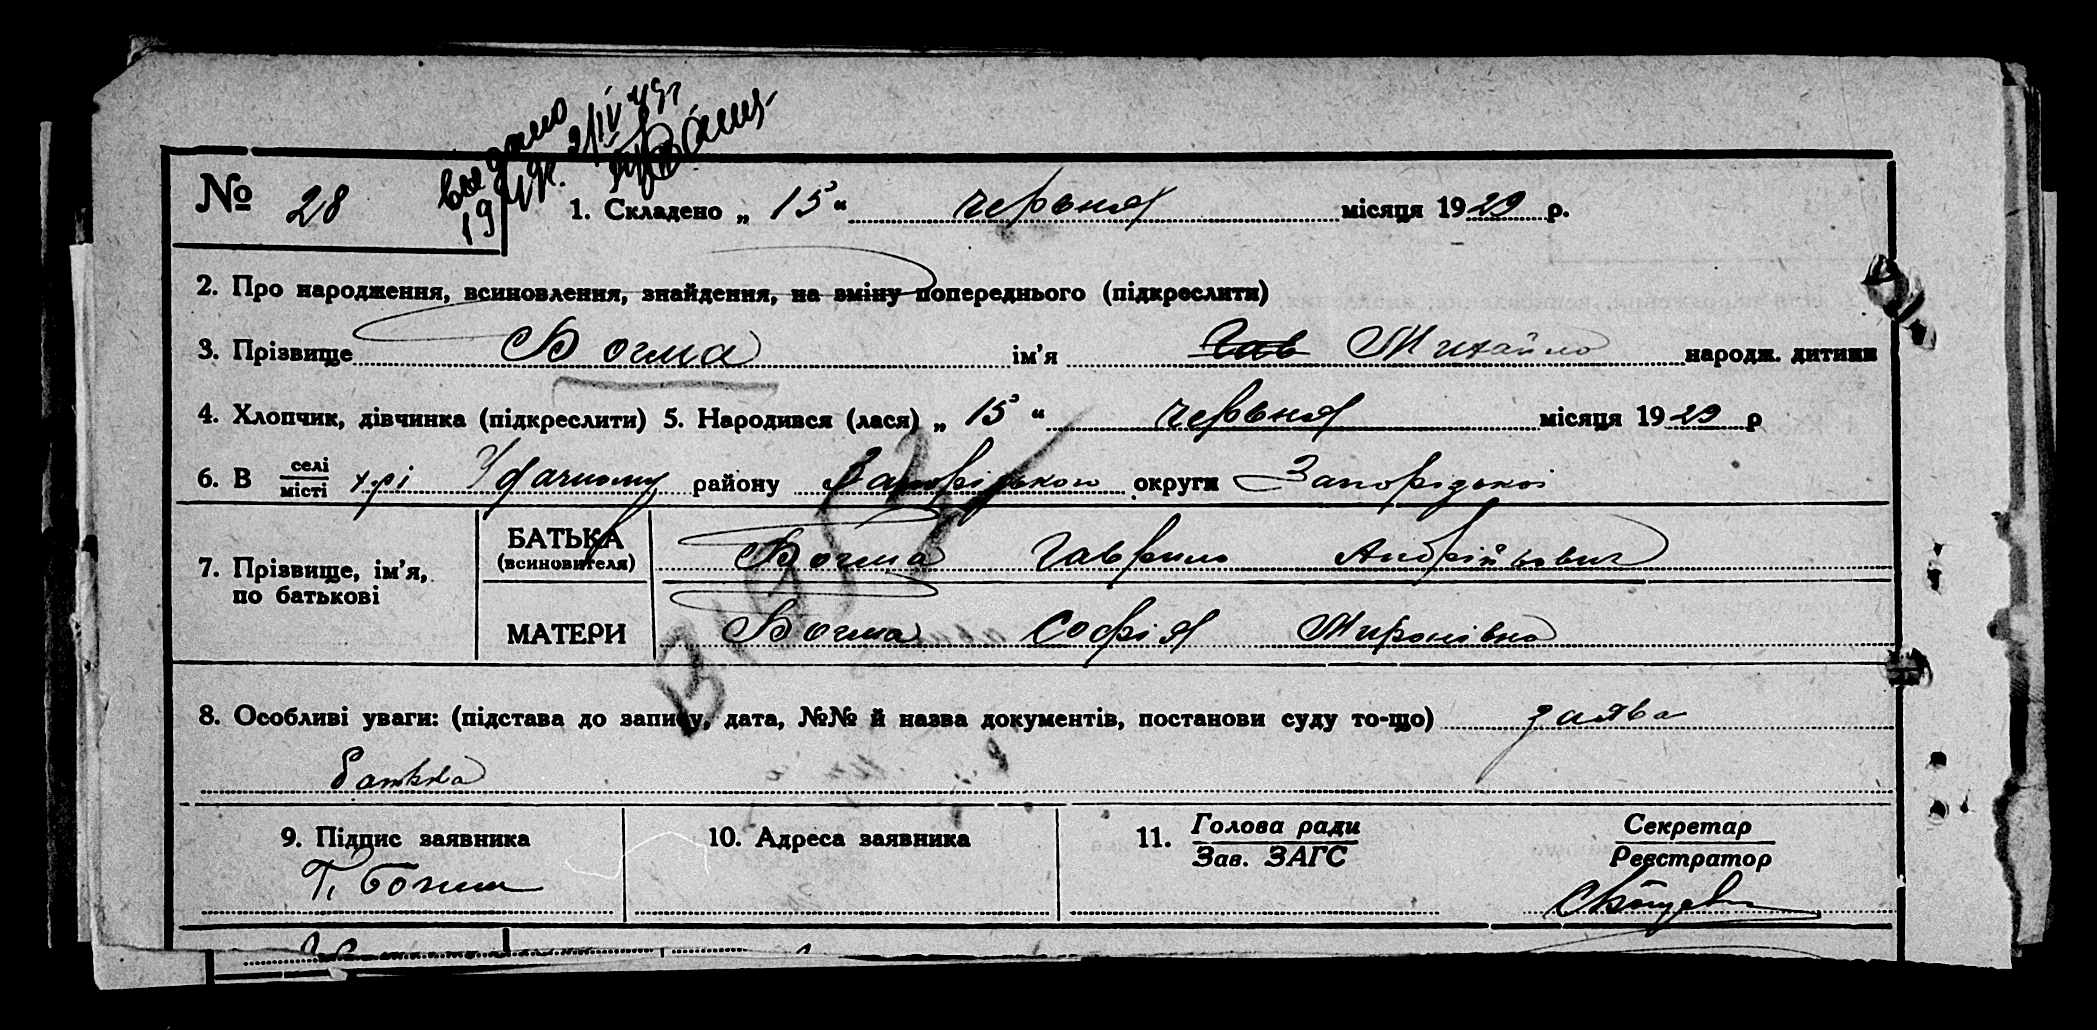 № 28
1. Складено „ 15 “ червня місяця 1929 р.
2. Про народження, всиновлення, знайдення, на зміну попереднього (підкреслити)
3. Прізвище Бочма ім’я Гав Михайло народж. дитини
4. Хлопчик, дівчинка (підкреслити) 5. Народився (лася) „ 15 “ червня місяця 1929 р
6. В селі місті х-рі Удачному району Запорізького округи Запорізької
7. Прізвище, ім’я, по батькові
БАТЬКА (всиновителя) Бочма Гаврило Андрійович
МАТЕРИ Бочма Софія Миронівна
8. Особливі уваги: (підстава до запису, дата, №№ й назва документів, постанови суду то-що) заява
батька
9. Підпис заявника
10. Адреса заявника
11. Голова ради
Зав. ЗАГС
Секретар
Реєстратор
Г. Бочма